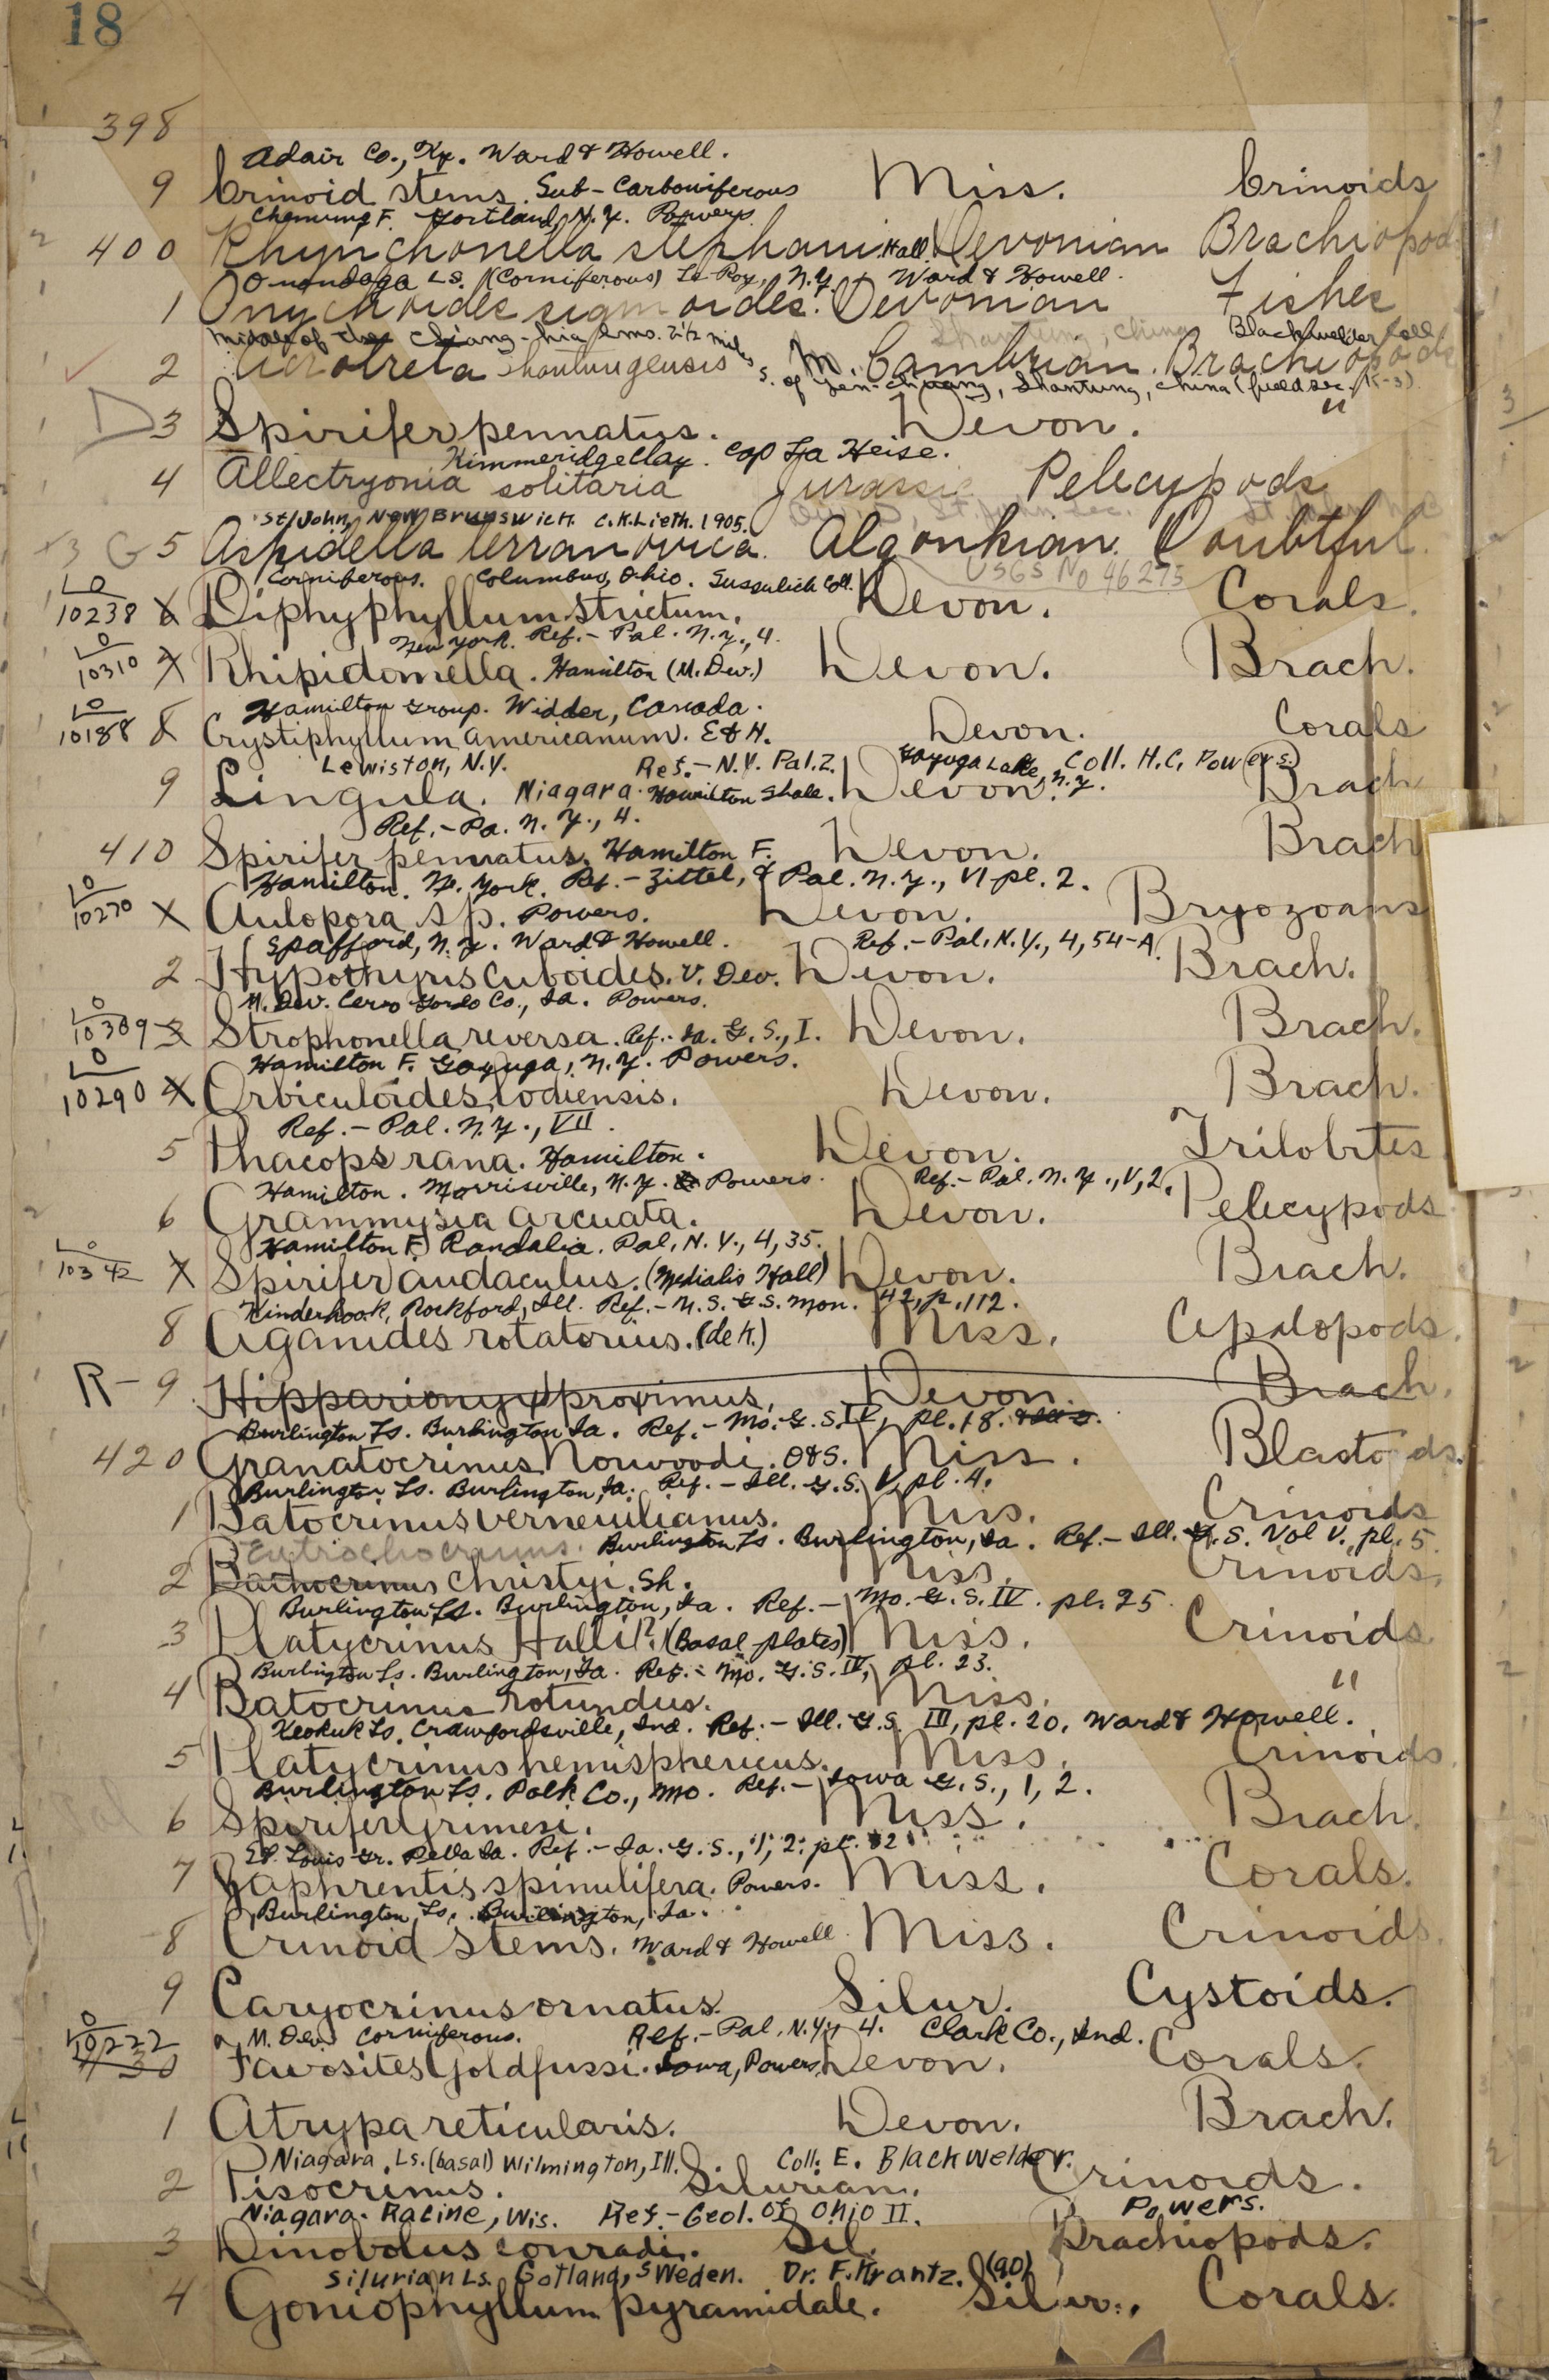 18
398
Adair Co., Ky. Ward & Howell.
9 Crinoid stems. Sub-Carboniferous Miss. Crinoids
Chemung F. Cortland, N.Y. Powers
400 Rhynchonella stephani Hall. Devonian Brachiopod
Onondaga Ls. (Corniferous) Le Roy, N.Y. Ward & Howell.
1 Onychoides sigmoides. Devonian Fishes
Middle of the Chang-hia lms. 2½ miles Shantung, China Blackwelder Coll
2 Acrotreta shantungensis M. Cambrian. Brachiopods
s. of Yen-chuang, Shantung, China (field sec.
D 3 Spirifer pennatus. Devon. "
Kimmeridge Clay. Cap La Heise.
4 Allectryonia solitaria Jurassic Pelecypods
St. John, New Brunswick. C.K. Lieth. 1905.
G 5 Aspidella terranovica. Algonkian. Doubtful.
USGS No 46275
Corniferous. Columbus, Ohio. Coll.
LO
10238 6 Diphyphyllum strictum. Devon. Corals.
New York. Ref.- Pal. N.Y., 4.
LO
10310 7 Rhipidomella. Hamilton (M. Dev.) Devon. Brach.
Hamilton Group. Widder, Canada.
LO
10188 8 Crystiphyllum americanum. E & H. Devon. Corals
Lewiston, N.Y. Ref.- N.Y. Pal. 2. Cayuga Lake, N.Y. Coll. H.C. Powers.
9 Lingula. Niagara. Hamilton Shale. Devon. Brach
Ref.- Pa. N.Y., 4.
410 Spirifer pennatus. Hamilton F. Devon. Brach
Hamilton. N. York. Ref.- Zittel, & Pal. N.Y., VI pl. 2.
LO
10270 X Aulopora sp. Powers. Devon. Bryozoans
Spafford, N.Y. Ward & Howell. Ref.- Pal. N.Y., 4, 54-A.
2 Hypothyris cuboides. V. Dev. Devon. Brach.
M. Dev. Cerro Gordo Co., Ia. Powers.
LO
10309 3 Strophonella reversa. Ref.- Ia. G. S., I. Devon. Brach.
Hamilton F. Cayuga, N.Y. Powers.
LO
10290 4 Orbiculoides lodiensis. Devon. Brach.
Ref.- Pal. N.Y., VII.
5 Phacops rana. Hamilton. Devon. Trilobites
Hamilton. Morrisville, N.Y. Powers. Ref.- Pal. N.Y., V, 2.
6 Grammysia arcuata. Devon. Pelecypods
Hamilton F. Randalia. Pal. N.Y., 4, 35.
LO
10342 X Spirifer audaculus. (Medialis Hall) Devon. Brach.
Kinderhook, Rockford, Ill. Ref.- U.S.G.S. Mon. 42, p. 112.
8 Aganides rotatorius. (de K.) Miss. Cepalopods.
R- 9 Hipparionyx proximus. Devon. Brach.
Burlington Ls. Burlington Ia. Ref.- Mo. G. S. IV, pl. 18.
420 Granatocrinus Norwoodi. O & S. Miss. Blastoids.
Burlington Ls. Burlington, Ia. Ref.- Ill. G. S. V, pl. 4.
1 Batocrinus verneuilianus. Miss. Crinoids
Eutrochocrinus. Burlington Ls. Burlington, Ia. Ref.- Ill. G. S. Vol V. pl. 5
2 Bathocrinus christyi. Sh. Miss. Crinoids.
Burlington Ls. Burlington, Ia. Ref.- Mo. G. S. IV. pl. 25
3 Platycrinus Halli?. (Basal plates) Miss. Crinoids
Burlington Ls. Burlington, Ia. Ref.- Mo. G. S. IV, pl. 23.
4 Batocrinus rotundus. Miss. "
Keokuk Ls. Crawfordsville, Ind. Ref.- Ill. G. S. III, pl. 20. Ward & Howell.
5 Platycrinus hemisphericus. Miss. Crinoids
Burlington Ls. Polk Co., Mo. Ref.- Iowa G. S., 1, 2.
6 Spirifer Grimesi. Miss. Brach.
St. Louis Gr. Pella Ia. Ref.- Ia. G. S., 1, 2: pt.
7 Zaphrentis spinulifera. Powers. Miss. Corals.
Burlington Ls. Burlington, Ia.
8 Crinoid Stems. Ward & Howell Miss. Crinoids.
9 Caryocrinus ornatus. Silur. Cystoids.
M. Dev. Corniferous. Ref.- Pal. N.Y., 4. Clark Co., Ind.
LO
10222
430 Favosites Goldfussi. Iowa, Powers. Devon. Corals.
1 Atrypa reticularis. Devon. Brach.
Niagara Ls. (basal) Wilmington, Ill. Coll. E. Blackwelder.
2 Pisocrinus. Silurian. Crinoids.
Niagara. Racine, Wis. Ref.- Geol. of Ohio II. Powers.
3 Dinobolus conradi. Sil. Brachiopods.
Silurian Ls. Gotland, Sweden. Dr. F. Krantz. (90)
4 Goniophyllum pyramidale. Silur. Corals.